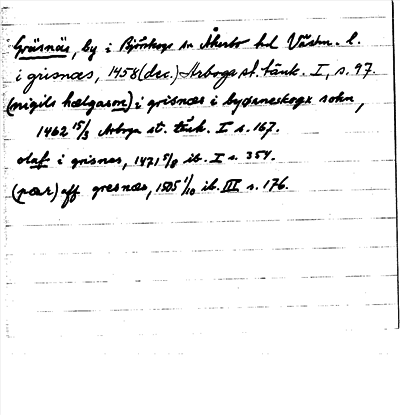 Gräsnäs, by i Björskogs sn Åkerbo hd Västm. l.
i grisnæs, 1458 (dec.) Arboga st. tänk. I, s. 97.
(nigils hælgason) i grisnæs i byørneskogx sokn,
1462 15/3 Arboga st. tänk. I s. 167.
olaf i grisnes, 1471 5/8 ib. I s. 354.
(pær) aff gresnæs, 1505 1/10 ib. III s. 176.